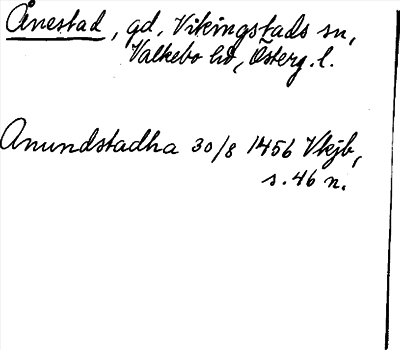 Ånestad, gd, Vikingstads sn,
Valkebo hd, Österg. l.
Anundstadha 30/8 1456 Vkjb,
s. 46 n.